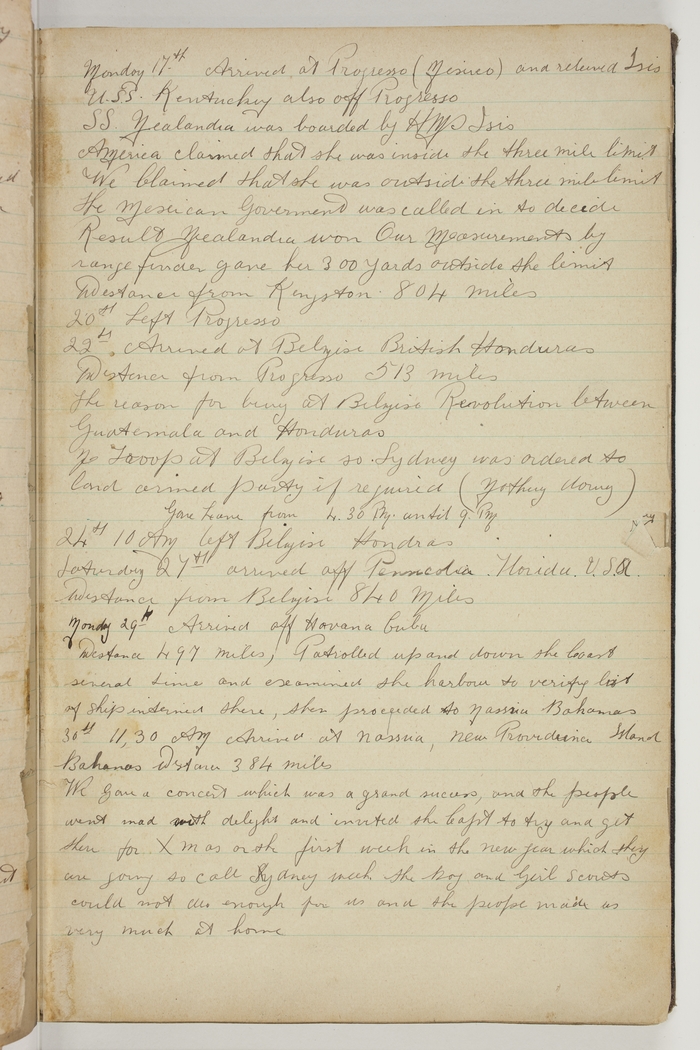 Monday 17th Arrived at Progresso (Mexico) and relieved Isis
U.S.S. Kentuckey also off Progresso
SS. Zealandia was boarded by HMS Isis
America claimed that she was inside the three mile limit
We Claimed that she was outside the three mile limit
the Mexican Goverment was called in to decide
Result Zealandia won Our Measurements by
range finder gave her 300 yards outside the limit
Distance from Kingston 804 miles
20th Left Progresso
22th. Arrived at Belyise British Honduras
Distance from Progresso 513 miles
the reason for being at Belyise Revolution between
Guatemala and Honduras
No Troops at Belyise so Sydney was ordered to
land armed party if required (Nothing doing)
Gave Leave from 4.30 Pm. until 9. Pm
24th 10 Am left Belyise Hondras
Saturday 27th arrived off Penncolia. Florida. U.S.A.
Distance from Belyise 840 Miles
Monday 29th Arrived off Havana Cuba
Distance 497 miles, Patrolled up and down the Coast
several time and examined the harbour to verify list
of ships interned there, then proceeded to Nassua Bahamas
30th 11,30 Am Arrived at Nassua, New Providence Island
Bahamas Distance 384 miles
We gave a concert which was a grand sucess, and the people
went mad with delight and invited the Capt to try and get
there for Xmas or the first week in the new year which they
are going to call Sydney week the Boy and Girl Scouts
could not do enough for us and the people made us
very much at home